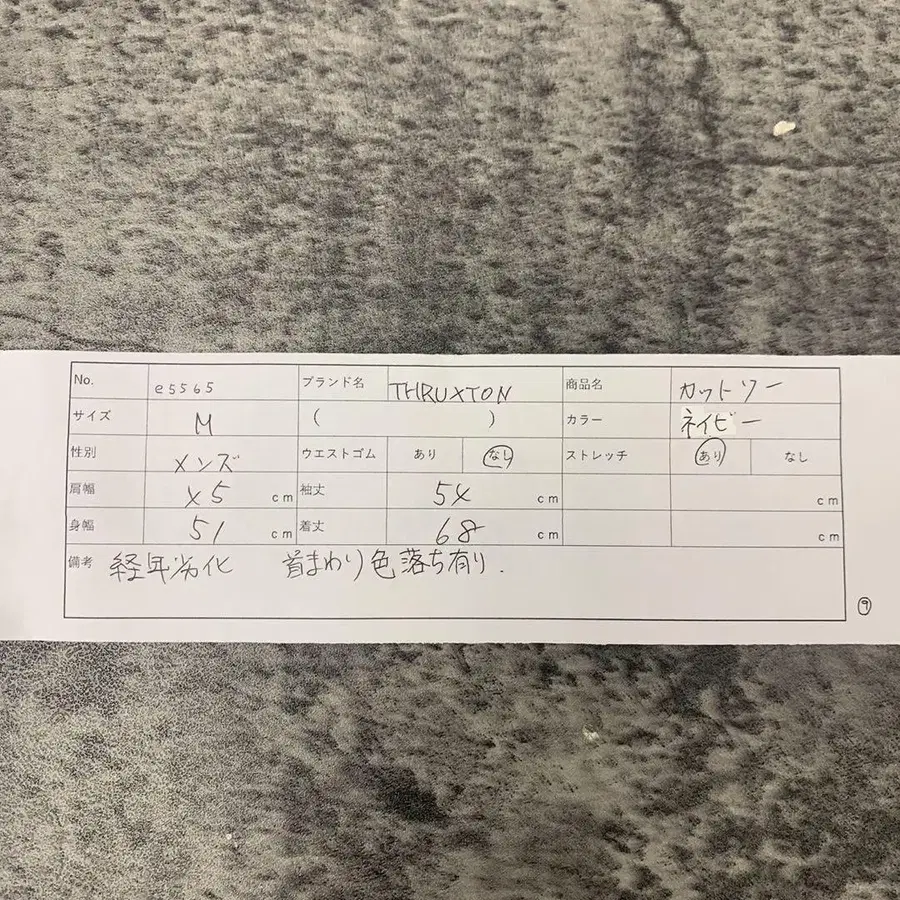 No. e5565 ブランド名 THRUXTON 商品名 カットソー
サイズ M ( ) カラー ネイビー
性別 メンズ ウエストゴム あり なし ストレッチ あり なし
肩幅 45 cm 袖丈 54 cm cm
身幅 51 cm 着丈 68 cm cm
備考 経年劣化 首まわり色落ち有り.
⑨